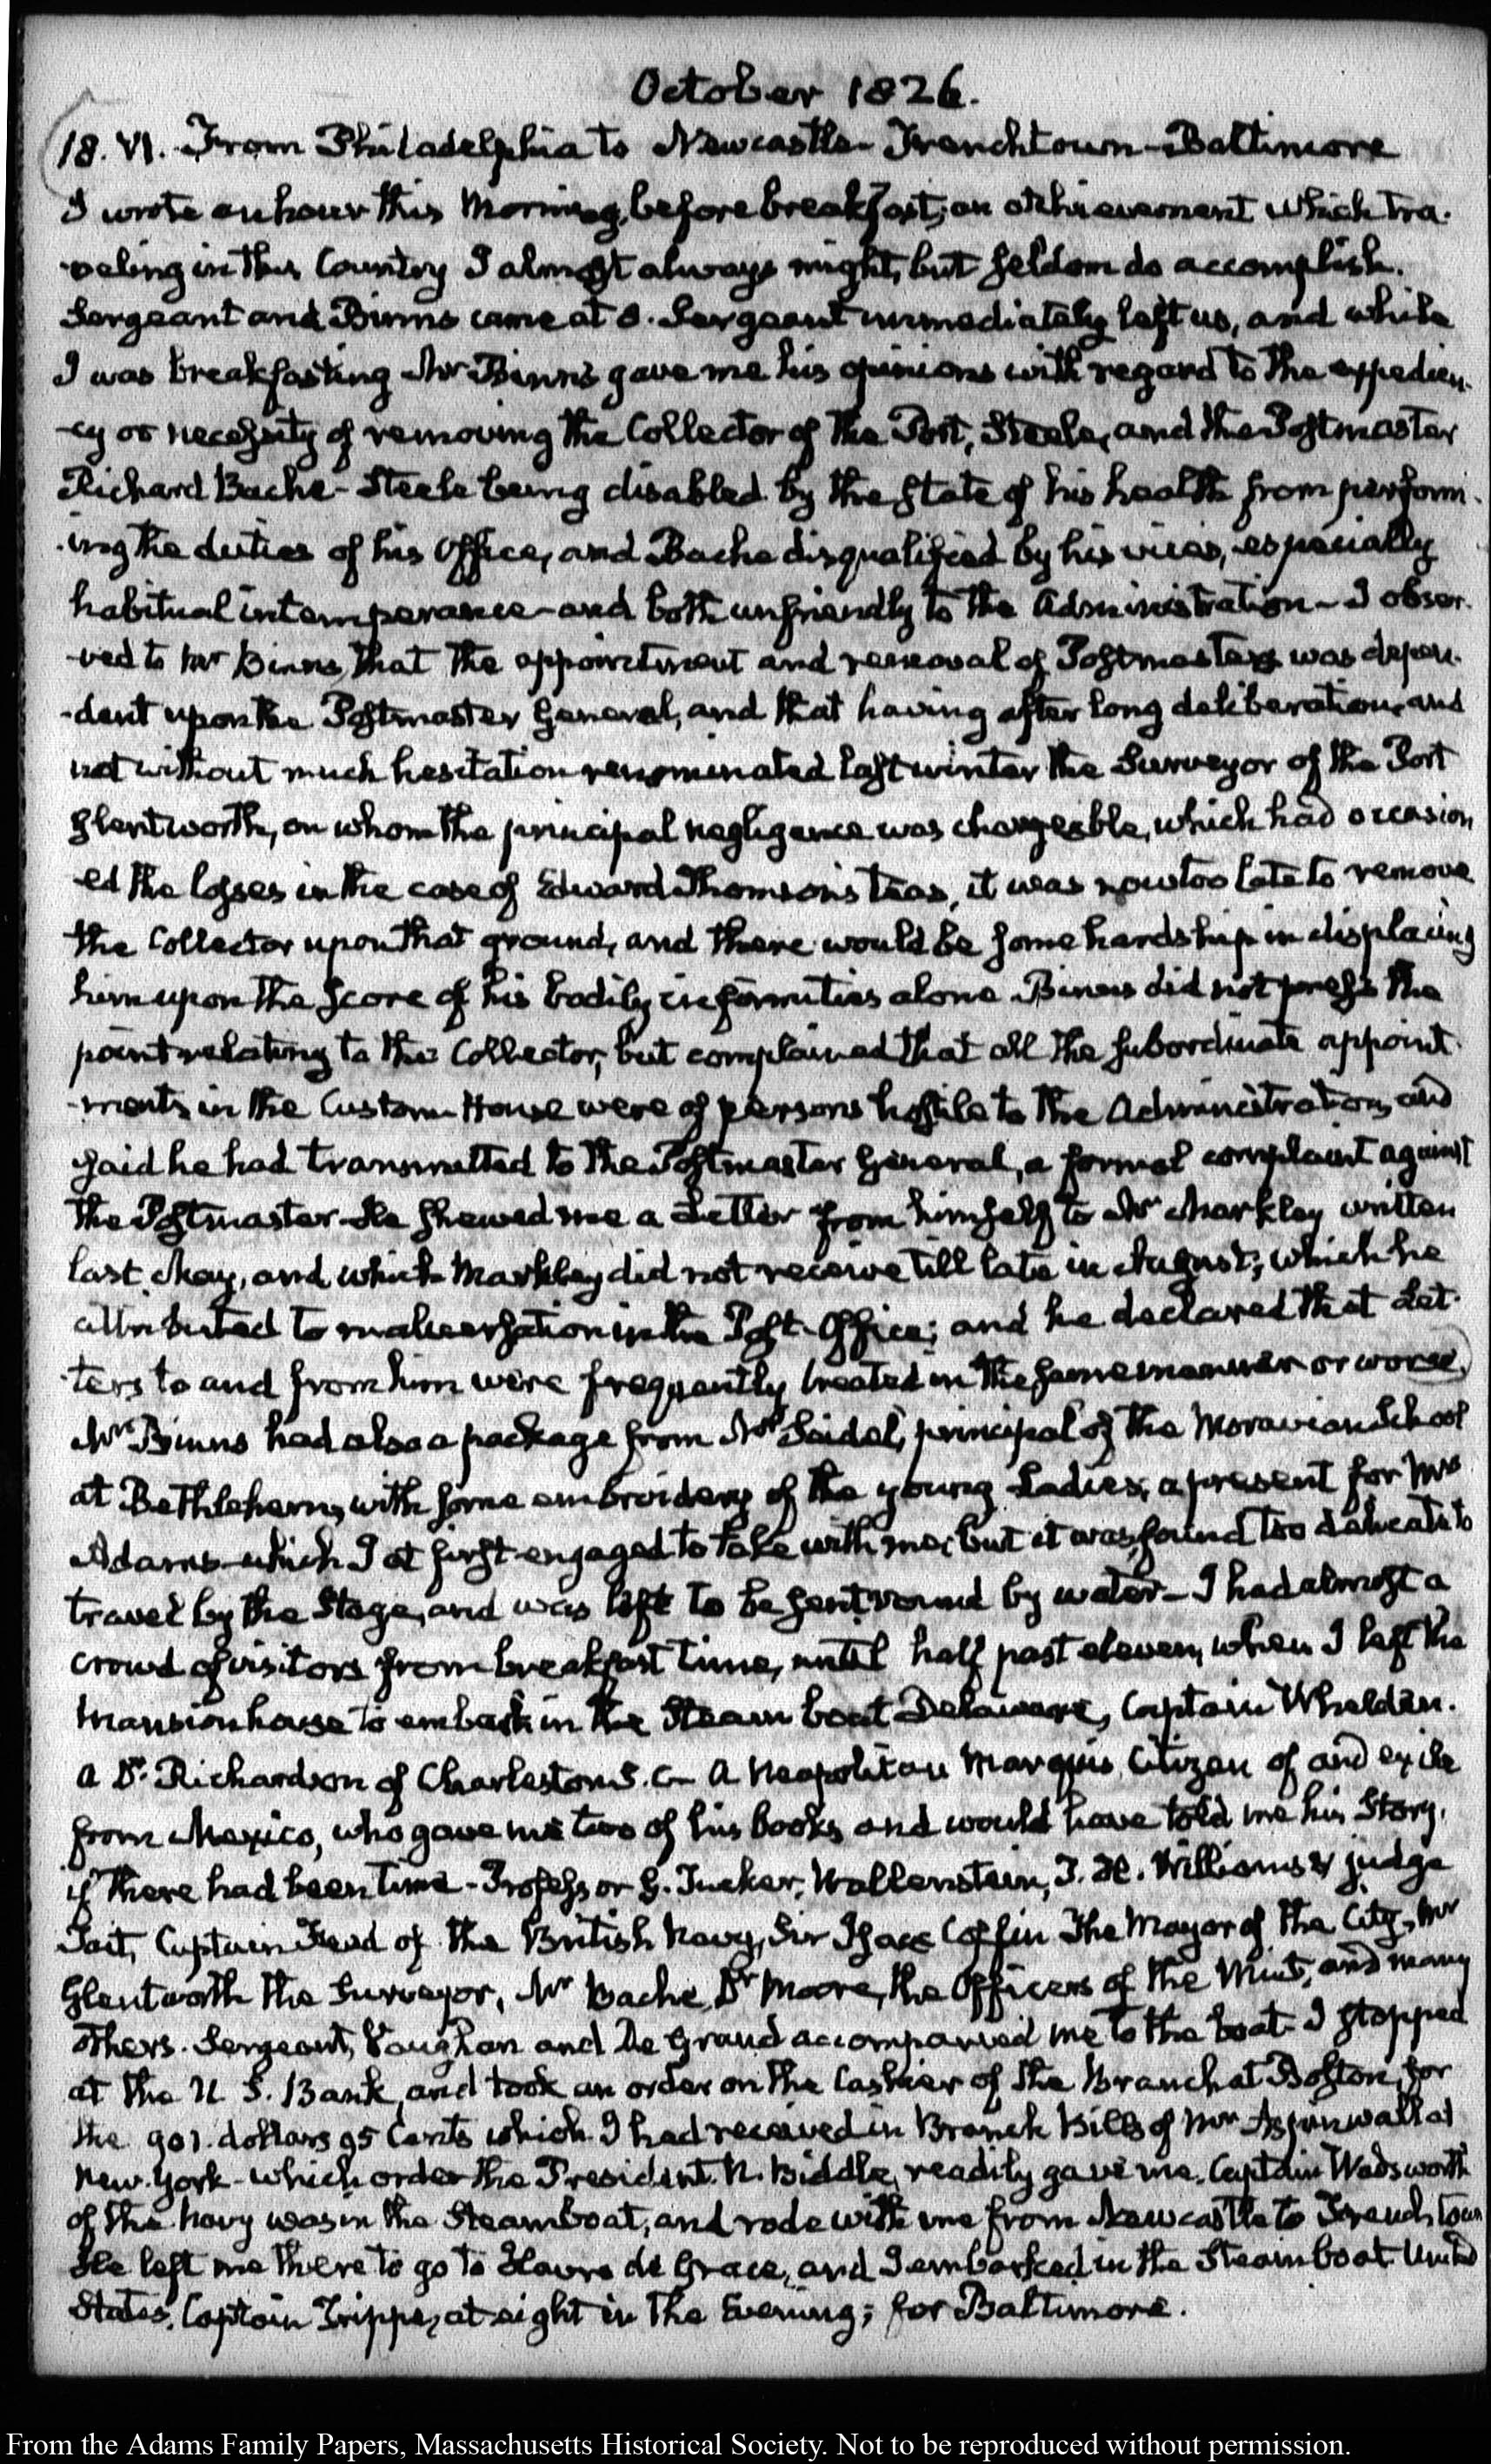 October 1826.
18. VI. From Philadelphia to Newcastle- Frenchtown-Baltimore
I wrote an hour this Morning, before breakfast; an atchievement which tra-
-veling in this Country I almost always might, but seldom do accomplish.
Sergeant and Binns came at 8. Sergeant immediately left us, and while
I was breakfasting Mr Binns gave me his opinions with regard to the expedien-
-cy or necessity of removing the Collector of the Port, Steele, and the Postmaster
Richard Bache- Steele being disabled by the state of his health from perform-
-ing the duties of his Office, and Bache disqualified by his vices, especially
habitual intemperance- and both unfriendly to the Administration- I obser-
-ved to Mr Binns, that the appointment and removal of Postmasters was depen-
-dent upon the Postmaster General, and that having after long deliberation, and
not without much hesitation renominated last winter the Surveyor of the Port
Glentworth, on whom the principal negligence was chargeable, which had occasion
-ed the losses in the case of Edward Thomson's teas, it was now too late to remove
the Collector upon that ground, and there would be some hardship in displacing
him upon the score of his bodily infirmities alone. Binns did not press the
point relating to the Collector, but complained that all the subordinate appoint-
-ments in the Custom-House were of persons hostile to the Administration, and
said he had transmitted to the Postmaster General, a formal complaint against
the Postmaster. He shewed me a Letter from himself to Mr Markley written
last May, and which Markley did not receive till late in August; which he
attributed to malversation in the Post-Office; and he declared that Let-
-ters to and from him were frequently treated in the same manner or worse.
Mr Binns had also a package from Mr Seidel, principal of the Moravian School
at Bethlehem, with some embroidery of the young Ladies; a present for Mrs
Adams- which I at first engaged to take with me; but it was found too delicate to
travel by the Stage, and was left to be sent round by water- I had almost a
crowd of visitors from breakfast time, until half past eleven, when I left the
Mansion house to embark in the Steam boat Delaware, Captain Whelden.
A Dr. Richardson of Charleston S.C- A Neapolitan Marquis, Citizen of and exile
from Mexico, who gave me two of his books, and would have told me his Story,
if there had been time- Professor G. Tucker, Wallenstein, J. H. Williams, judge
Tait, Captain Head of the British Navy, Sir Isaac Coffin The Mayor of the City, Mr
Glentworth the Surveyor, Mr Bache, Dr Moore, the Officers of the Mint, and many
others. Sergeant, Vaughan and De Grand accompanied me to the boat- I stopped
at the U. S. Bank, and took an order on the Cashier of the Branch at Boston, for
the 901. dollars 95 Cents which I had received in Branch Bills of Mr Aspinwall at
New-York- which order the President N. Biddle, readily gave me. Captain Wadsworth
of the Navy was in the Steamboat, and rode with me from Newcastle to Frenchtown
He left me there to go to Havre de Grace, and I embarked in the Steamboat United
States, Captain Trippe, at eight in the Evening; for Baltimore.
From the Adams Family Papers, Massachusetts Historical Society. Not to be reproduced without permission.